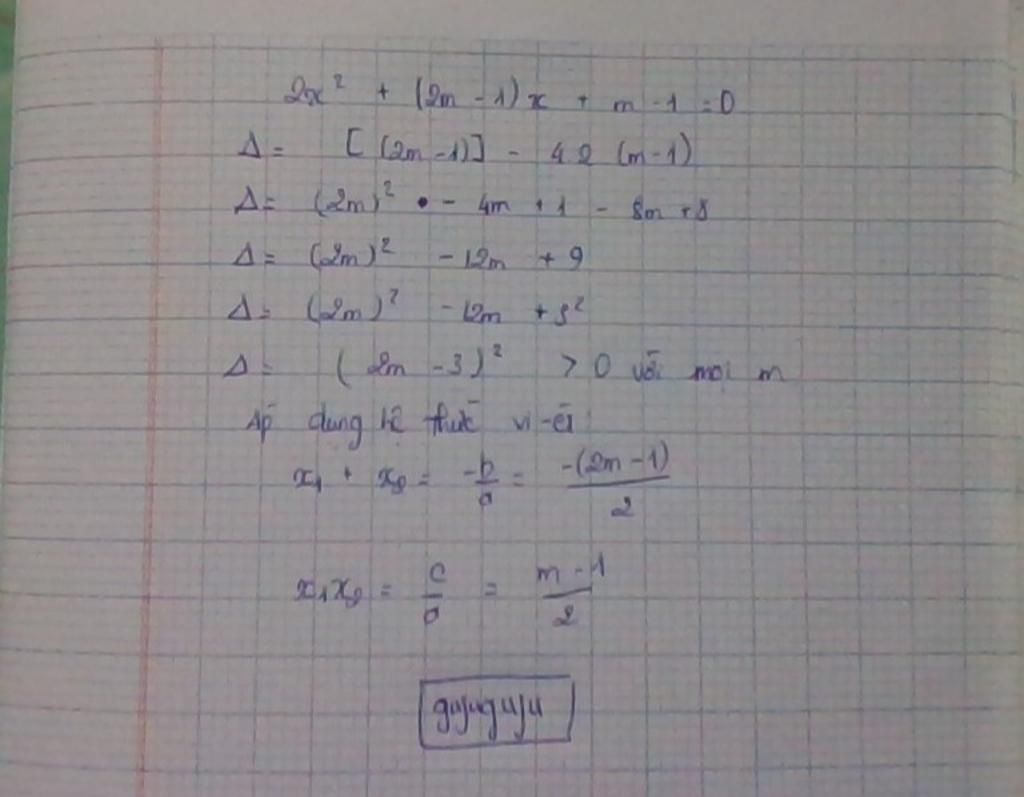 2x² + (2m - 1)x + m - 1 = 0
Δ = [(2m - 1)] - 4 2 (m - 1)
Δ = (2m)² • - 4m + 1 - 8m + 8
Δ = (2m)² - 12m + 9
Δ = (2m)² - 12m + 3²
Δ = (2m - 3)² > 0 với mọi m
Áp dụng hệ thức vi-ét
x₁ + x₂ = -b/a = -(2m - 1)/2
x₁x₂ = c/a = m - 1/2
gujuguju